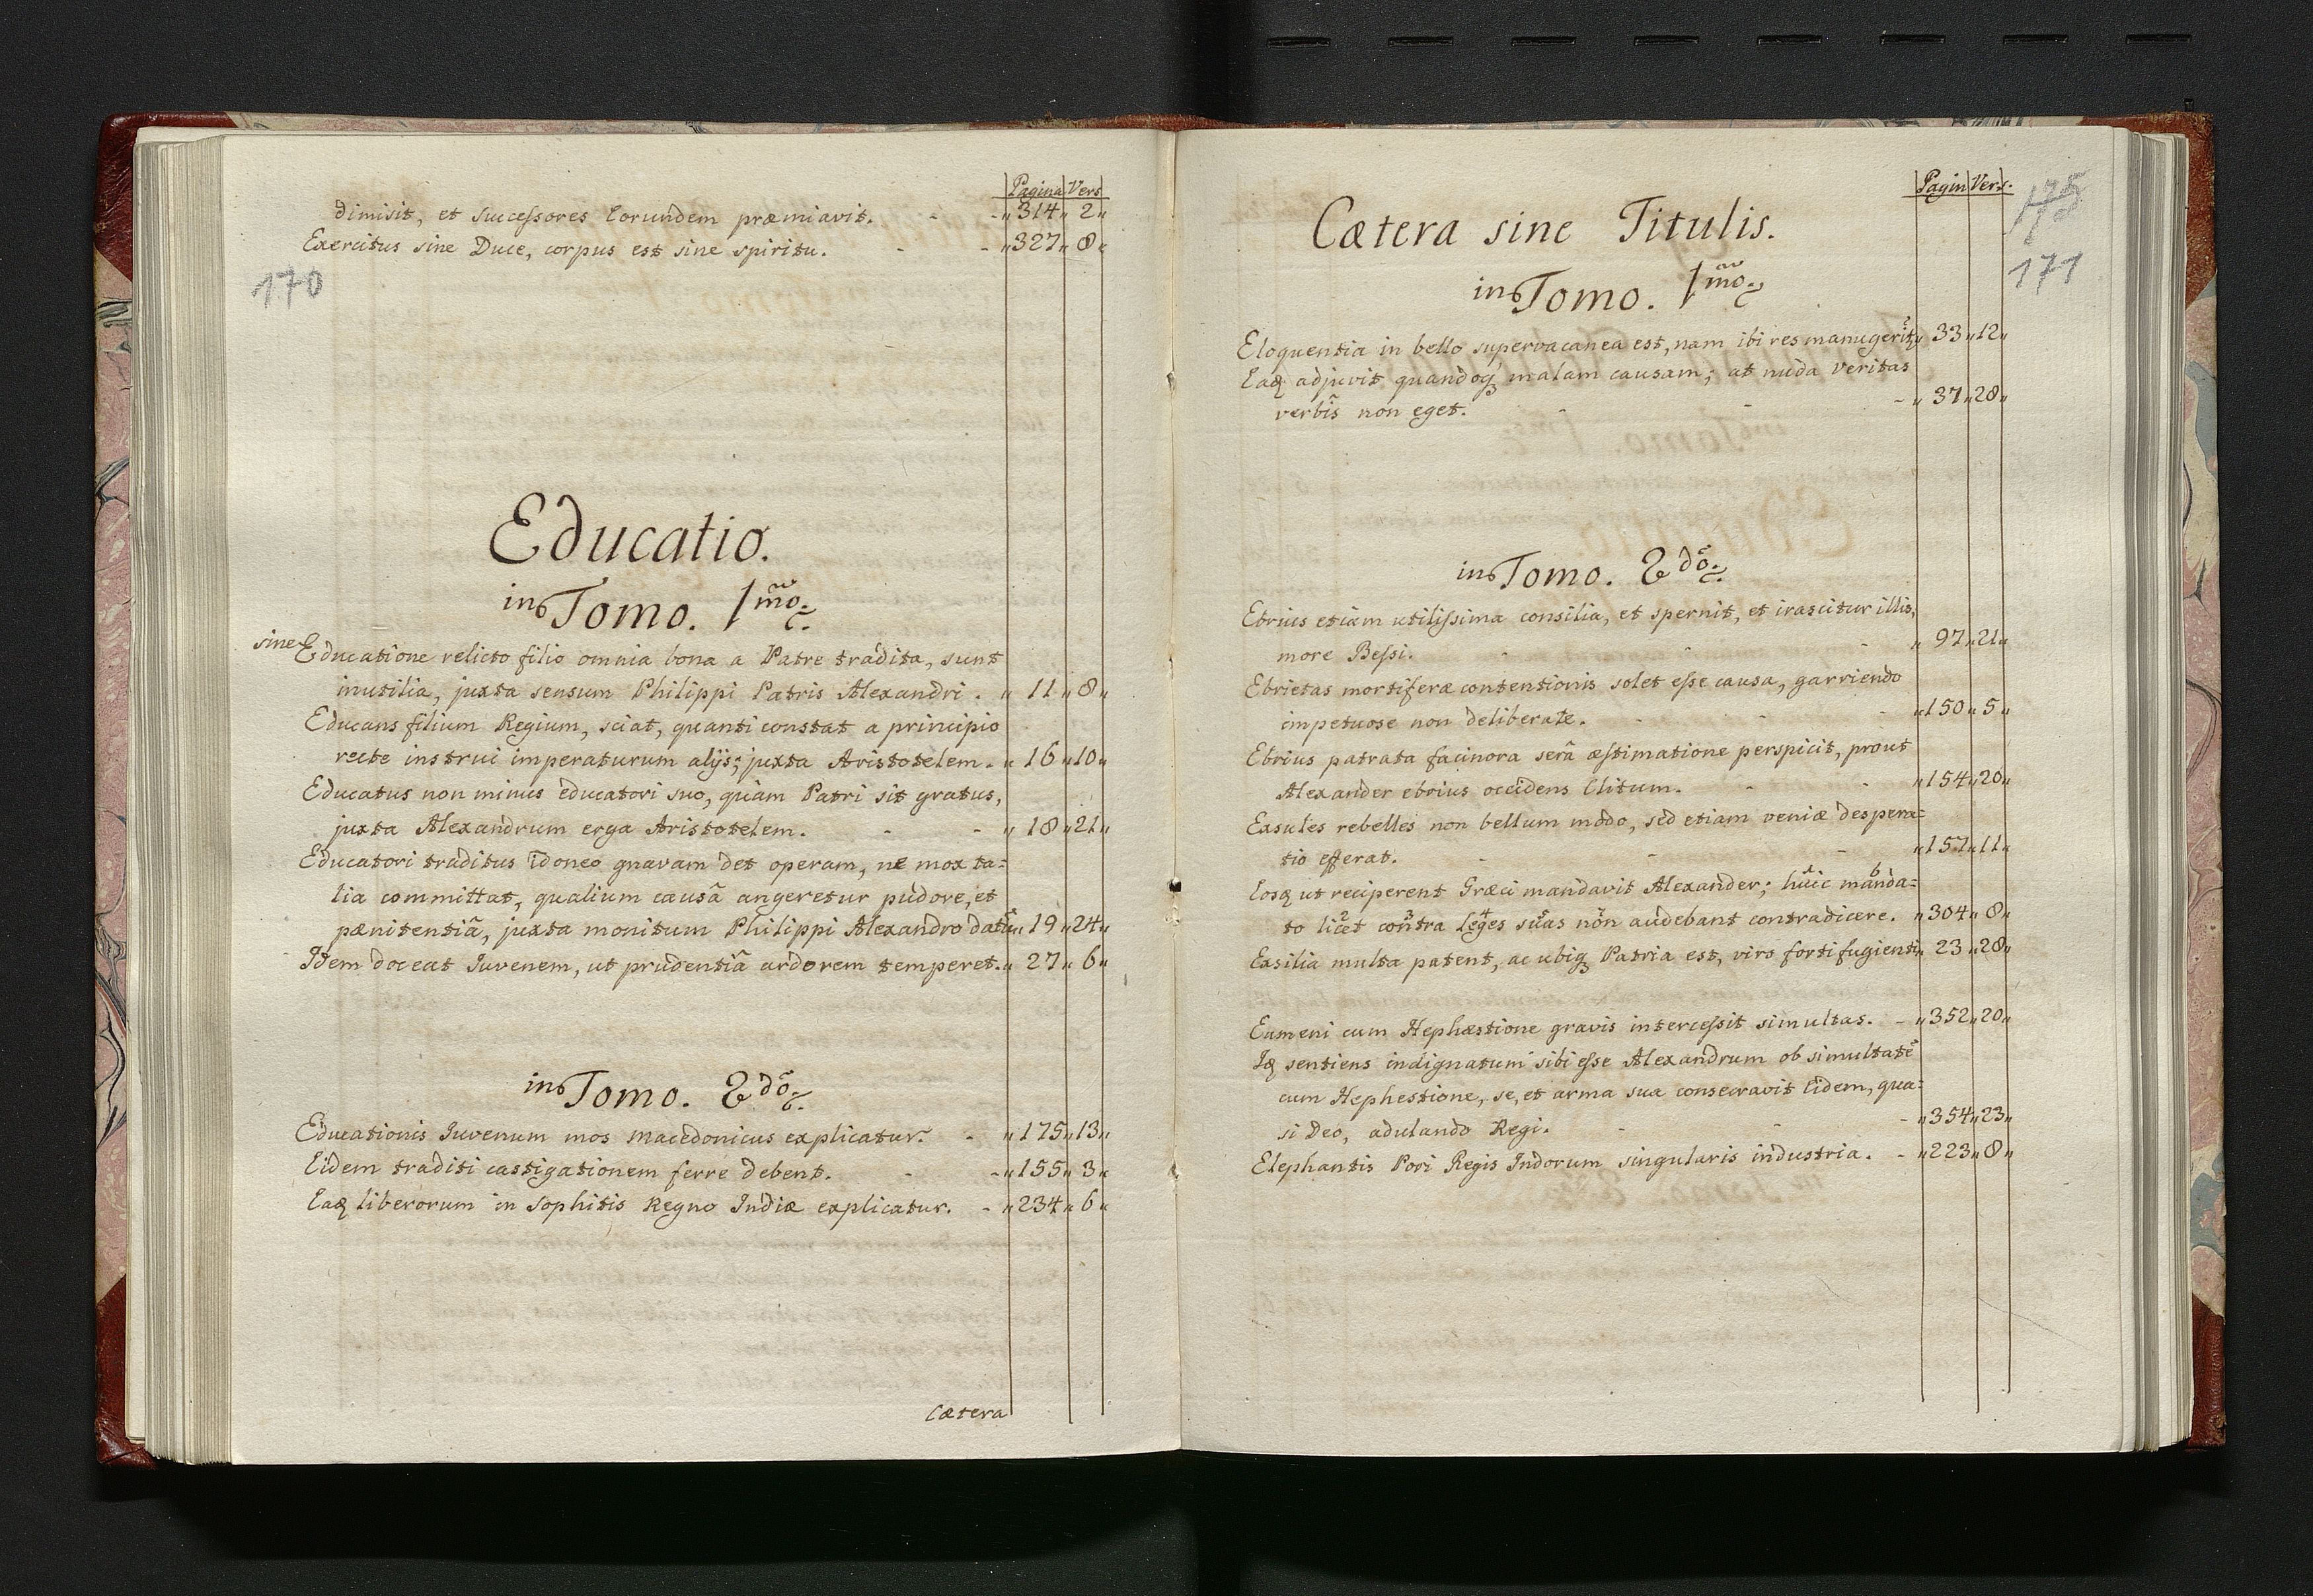 Pagina Vers
dimisit, et successores Eorundem præmiavit. - - „ 314 „ 2 „
Exercitus sine Duce, corpus est sine spiritu. - - „ 327 „ 8 „
170
Educatio.
in Tomo. 1mo.
sine Educatione relicto filio omnia bona a Patre tradita, sunt
inutilia, juxta sensum Philippi Patris Alexandri. „ 11 „ 8 „
Educans filium Regium, sciat, quanti constat a principio
recte instrui imperaturum alijs; juxta Aristotelem. „ 16 „ 10 „
Educatus non minus educatori suo, quàm Patri sit gratus,
juxta Alexandrum erga Aristotelem. - - „ 18 „ 21 „
Educatori traditus idoneo gnavam det operam, ne mox ta=
lia committat, qualium causâ angeretur pudore, et
pænitentiâ, juxta monitum Philippi Alexandro datũ „ 19 „ 24 „
Idem doceat Iuvenem, ut prudentiâ ardorem temperet. „ 27 „ 6 „
in Tomo. 2dõ.
Educationis Iuvenum mos Macedonicus explicatur. - „ 175 „ 13 „
Eidem traditi castigationem ferre debent. - - „ 155 „ 3 „
Eaq liberorum in Sophitis Regno Indiæ explicatur. - „ 234 „ 6 „
Cætera
Pagin Vers.
175
171
Cætera sine Titulis.
in Tomo. 1mo.
Eloquentia in bello supervacanea est, nam ibi res manu gerit „ 33 „ 12 „
Eaq adjuvit quandoq malam causam; at nuda veritas
verbis non eget. - - - „ 37 „ 28 „
in Tomo. 2dõ.
Ebrius etiam utilissima consilia, et spernit, et irascitur illis,
more Bessi. - - - „ 97 „ 21 „
Ebrietas mortiferæ contentionis solet esse causa, garriendo
impetuose non deliberate. - - - „ 150 „ 5 „
Ebrius patrata facinora serâ æstimatione perspicit, prout
Alexander ebrius occidens Clitum. - - „ 154 „ 20 „
Exsules rebelles non bellum modo, sed etiam veniæ despera=
tio efferat. - - - „ 157 „ 11 „
Eosq ut reciperent Græci mandavit Alexander; huic manda=
to licet contra leges suas non audebant contradicere. „ 304 „ 8 „
Exsilia multa patent, ac ubiq Patria est, viro forti fugienti „ 23 „ 28 „
Eumeni cum Hephæstione gravis intercessit simultas. - „ 352 „ 20 „
Iq sentiens indignatum sibi esse Alexandrum ob simultatẽ
cum Hephestione, se, et arma sua consecravit Eidem, qua=
si Deo, adulando Regi. - - - „ 354 „ 23 „
Elephantis Pori Regis Indorum singularis industria. - „ 223 „ 8 „